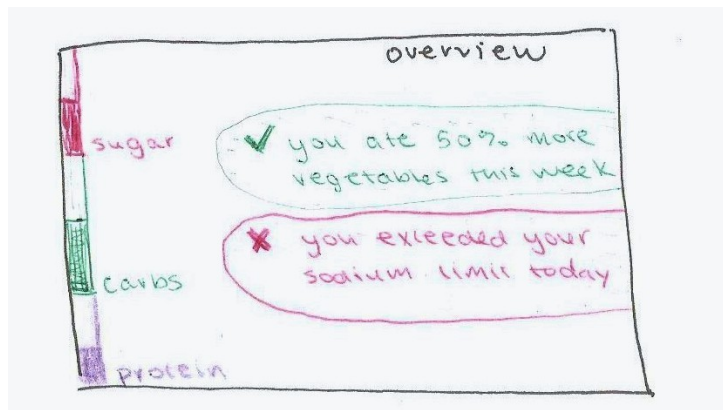 overview
sugar
✓ you ate 50% more
vegetables this week
✗ you exceeded your
sodium limit today
carbs
protein